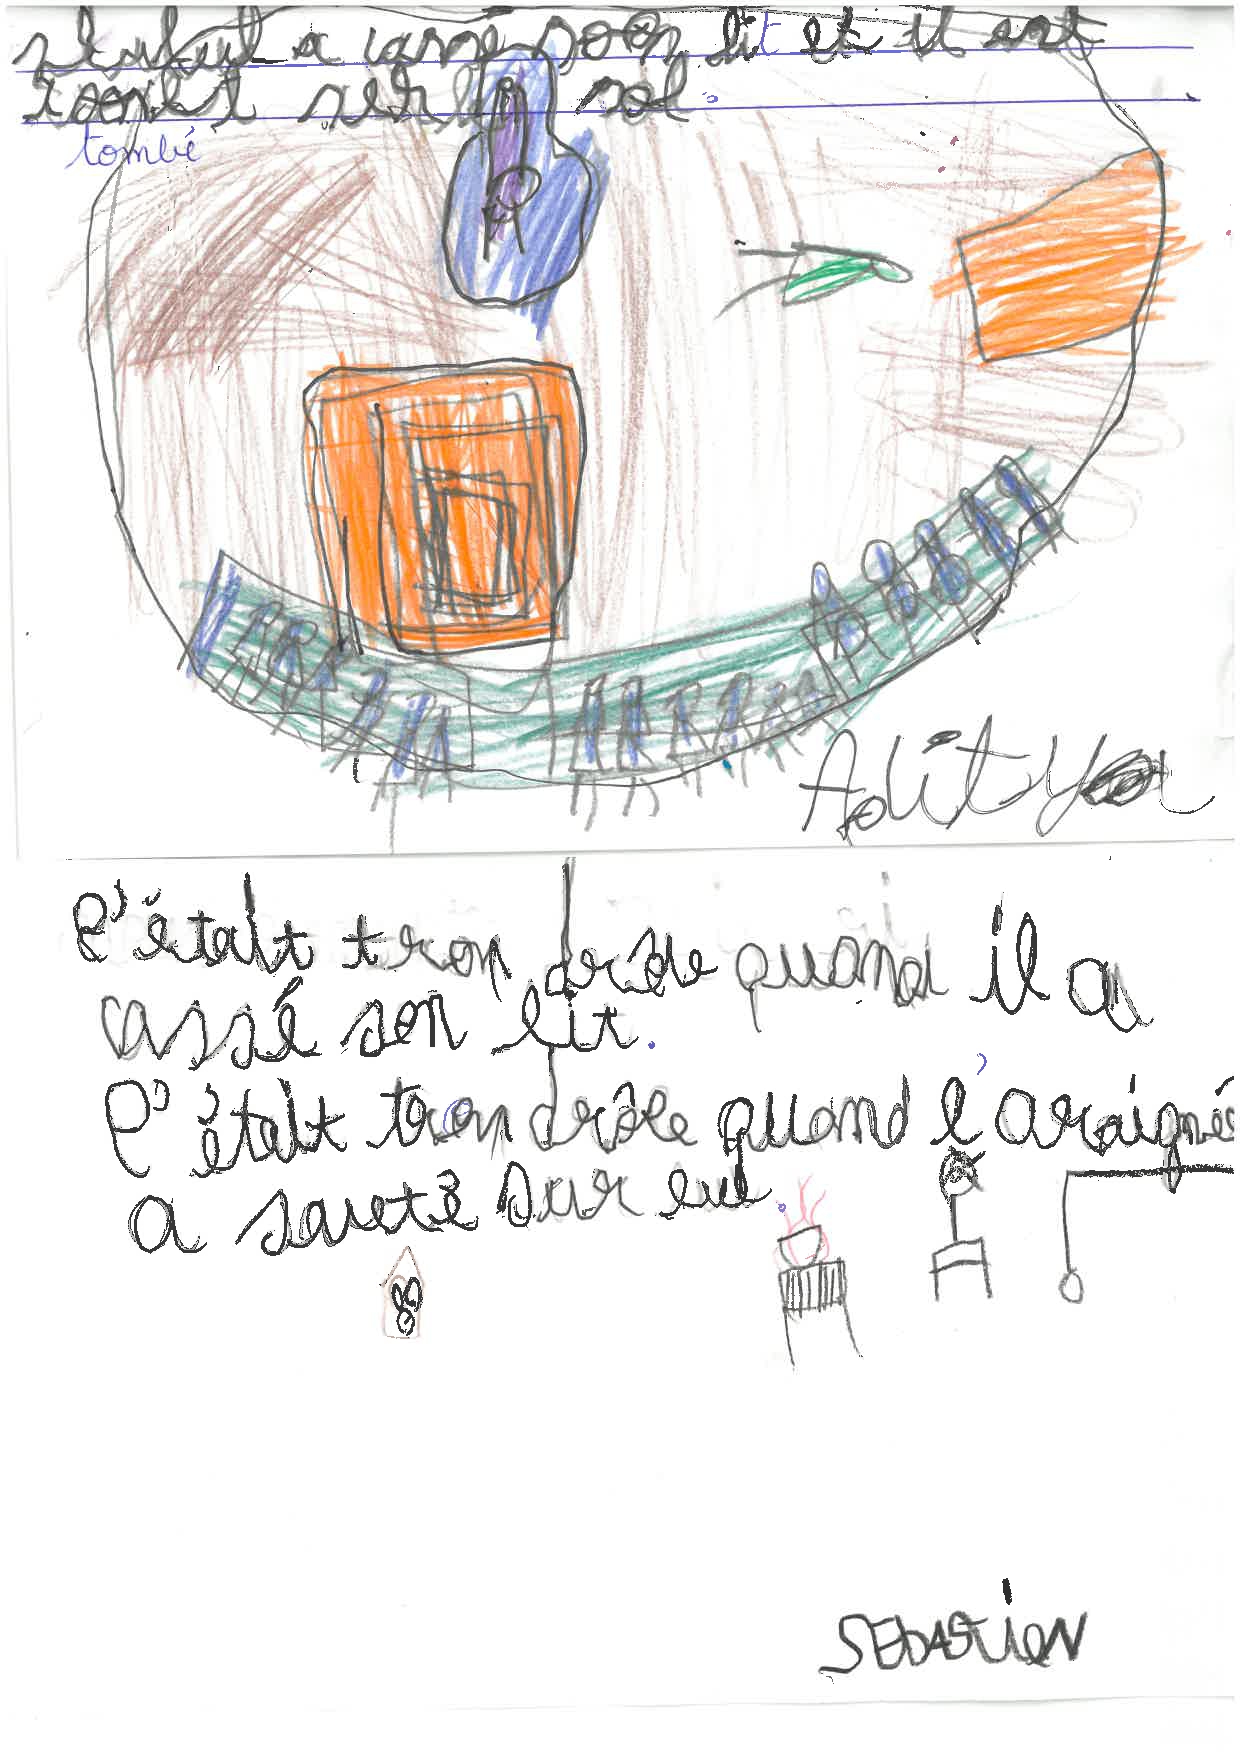 a casse son lit et il est
sol.
tombé
Aditya
C'était trop drôle quand il a
cassé son lit.
C'était trop drôle quand l'araignée
a sauté sur lui.
SEBASTIEN